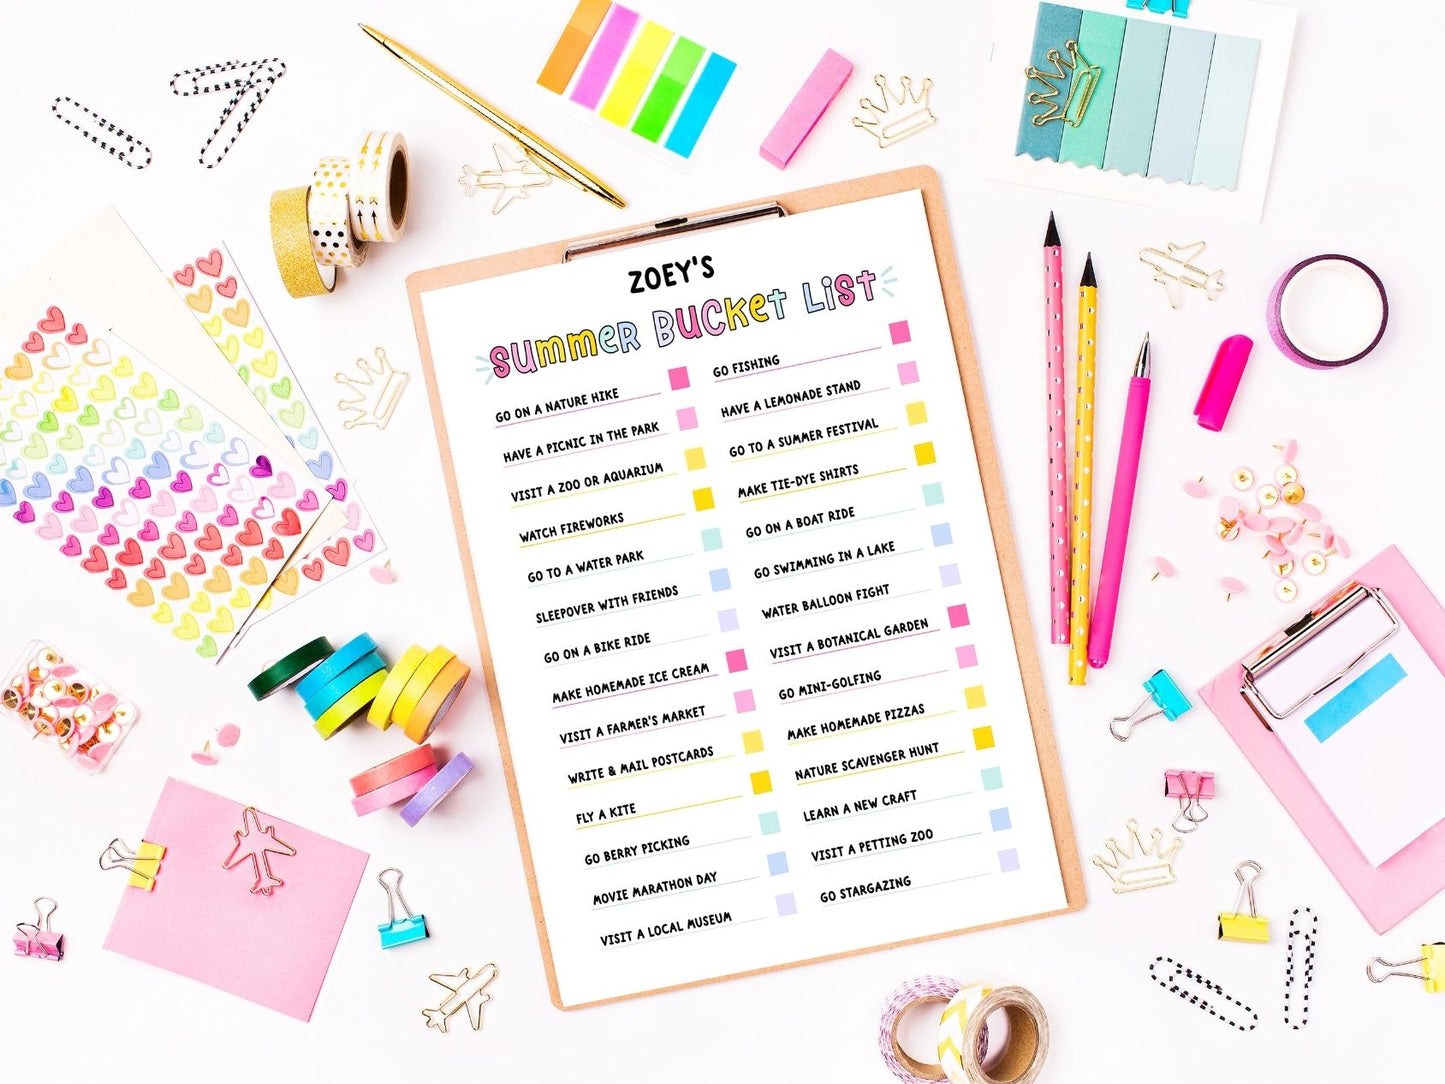 ZOEY'S
SUMMER BUCKET LIST
GO ON A NATURE HIKE
HAVE A PICNIC IN THE PARK
VISIT A ZOO OR AQUARIUM
WATCH FIREWORKS
GO TO A WATER PARK
SLEEPOVER WITH FRIENDS
GO ON A BIKE RIDE
MAKE HOMEMADE ICE CREAM
VISIT A FARMER'S MARKET
WRITE & MAIL POSTCARDS
FLY A KITE
GO BERRY PICKING
MOVIE MARATHON DAY
VISIT A LOCAL MUSEUM
GO FISHING
HAVE A LEMONADE STAND
GO TO A SUMMER FESTIVAL
MAKE TIE-DYE SHIRTS
GO ON A BOAT RIDE
GO SWIMMING IN A LAKE
WATER BALLOON FIGHT
VISIT A BOTANICAL GARDEN
GO MINI-GOLFING
MAKE HOMEMADE PIZZAS
NATURE SCAVENGER HUNT
LEARN A NEW CRAFT
VISIT A PETTING ZOO
GO STARGAZING